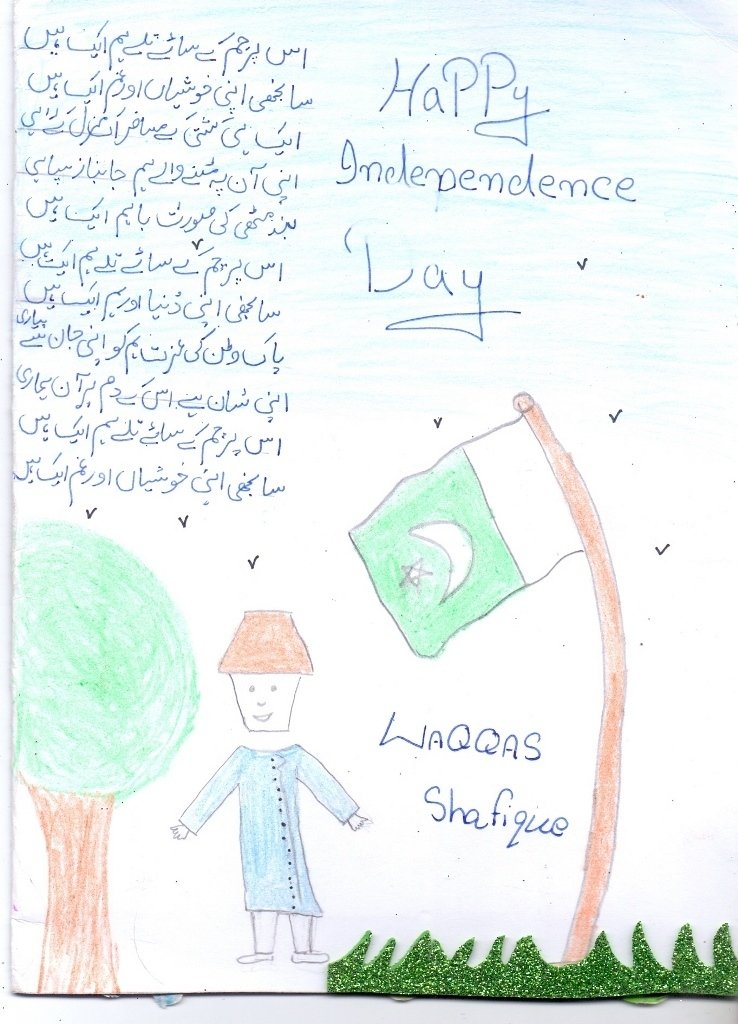 اس پرچم کے سائے تلے ہم ایک ہیں
سانجھی اپنی خوشیاں اور غم ایک ہیں
ایک ہی کشتی کے مسافر اک منزل کے راہی
اپنی آن پہ مٹنے والے ہم جانباز سپاہی
بند مٹھی کی صورت باہم ایک ہیں
اس پرچم کے سائے تلے ہم ایک ہیں
سانجھی اپنی دُنیا اور ہم ایک ہیں
پاک وطن کی عزت ہم کو اپنی جان سے پیاری
اپنی شان ہے اس کے دم پر آن ہماری
اس پرچم کے سائے تلے ہم ایک ہیں
سانجھی اپنی خوشیاں اور غم ایک ہیں
HaPPy
Independence
Day
WAQQAS
Shafique